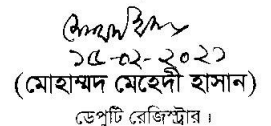 ১৫-০২-২০২১
(মোহাম্মদ মেহেদী হাসান)
ডেপুটি রেজিস্ট্রার।